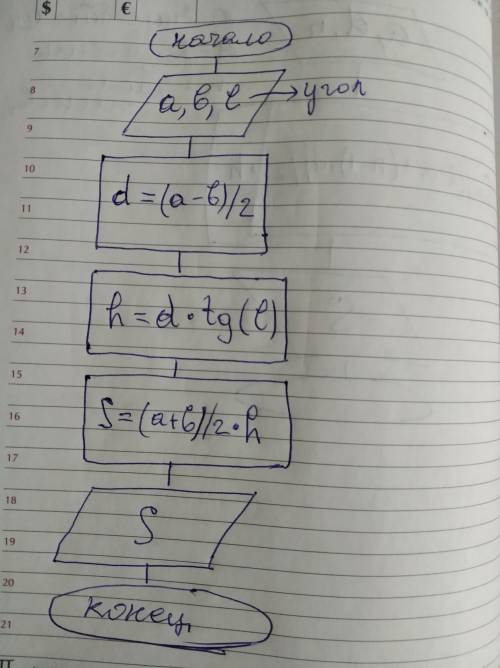 $ €
начало
7
8
a, b, l → угол
9
10
d = (a - b)/2
11
12
13
h = d · tg(l)
14
15
S = (a+b)/2 · h
16
17
18
S
19
20
конец
21